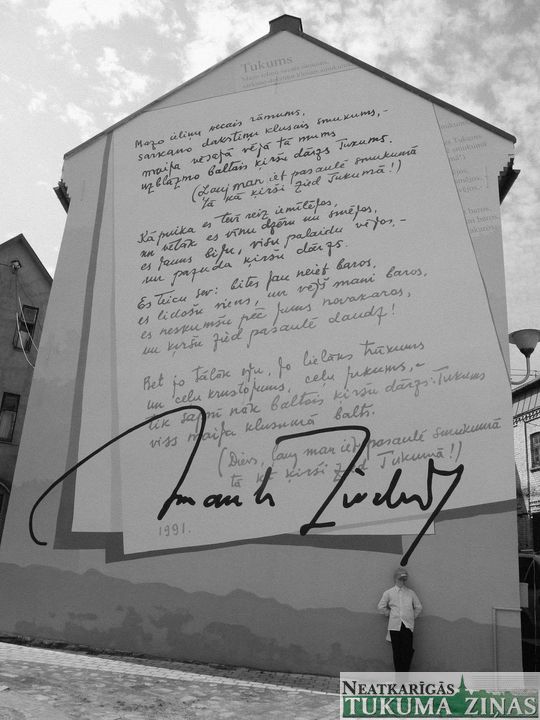 Tukums
Mazo ieliņu vecais rāmums,
sarkano dakstiņu klusais smukums,-
maiga vēsajā vējā tā mums
uzblāzmo baltais ķiršu dārzs Tukums.
(Ļauj man iet pasaulē smukumā
tā kā ķirši zied Tukumā!)
Kā puika es tevī reiz iemīlējos,
un vēlāk es vīnu dzēru un smējos,
es jauns biju, visu palaidu vējos,-
un pazuda ķiršu dārzs.
Es teicu sev: bites jau neiet baros,
es lidošu viens, un vējš mani baros,
es neskumšu pēc jums novakaros,
un ķiršu zied pasaulē daudz!
Bet jo tālāk eju, jo lielāks trūkums
un ceļu krustojums, ceļu jukums,-
tik sapnī nāk baltais ķiršu dārzs: Tukums
viss maiga klusumā balts.
(Dievs, ļauj man iet pasaulē smukumā
tā kā ķirši zied Tukumā!)
Imants Ziedonis
1991.
NEATKARĪGĀS
TUKUMA ZIŅAS